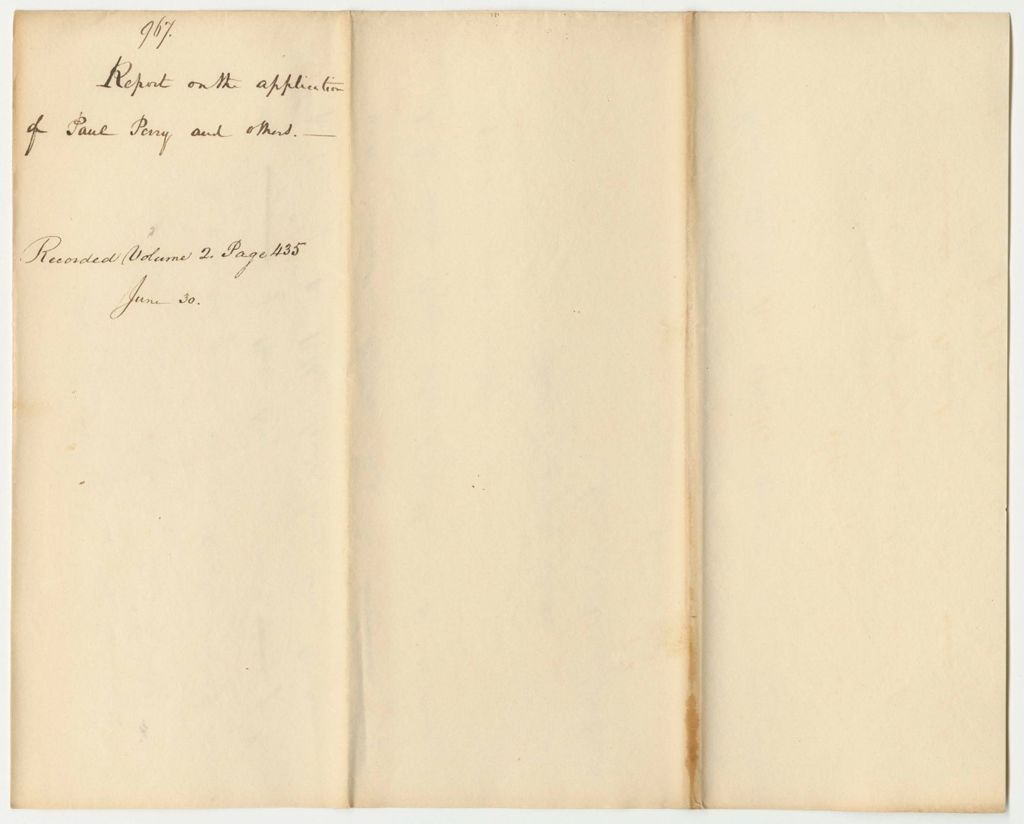 967.
Report on the application
of Paul Perry and others. —
Recorded Volume 2. Page 435
June 30.